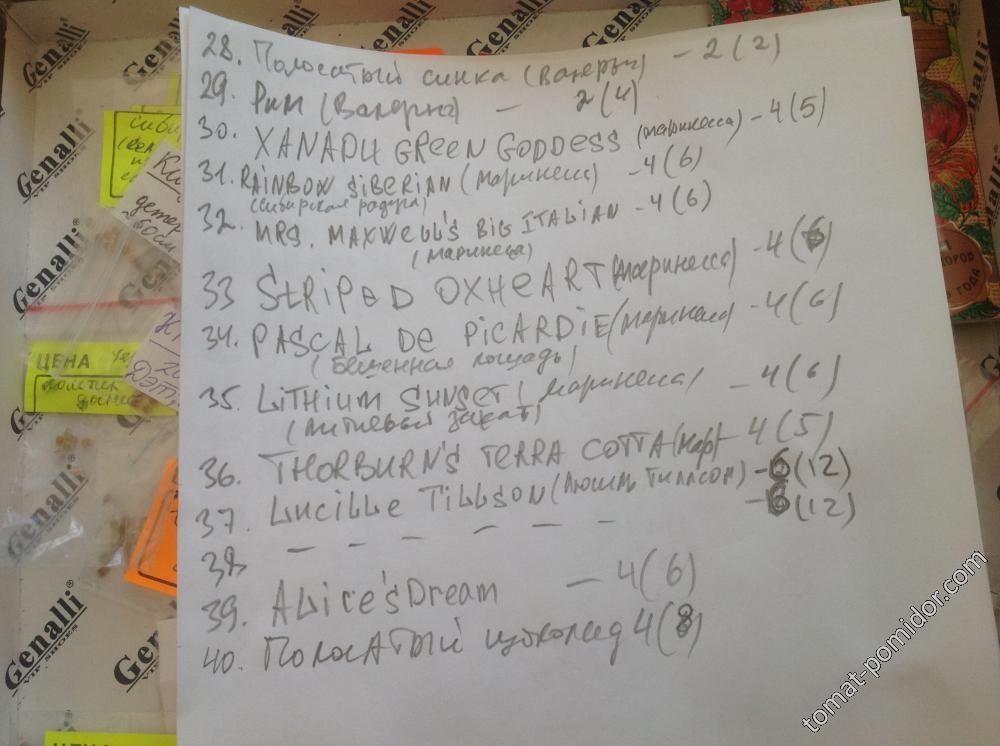 28. Полосатый синка (Валеры) - 2 (2)
29. Рим (Валерия) - 2 (4)
30. XANADU GREEN GODDESS (маринесса) - 4 (5)
31. RAINBOW SIBERIAN (маринесса) - 4 (6)
(сибирская радуга)
32. MRS. MAXWELL'S BIG ITALIAN - 4 (6)
(маринеса)
33 STRIPED OXHEART (маринесса) - 4 (6)
34. PASCAL DE PICARDIE (маринесса) - 4 (6)
(бешенная лошадь)
35. LITHIUM SUNSET (маринесса) - 4 (6)
(литиевый закат)
36. THORBURN'S TERRA COTTA (мар) - 4 (5)
37. LUCILLE TILLSON (Люсиль Тиллсон) - 6 (12)
38 - - - - - - - 6 (12)
39. ALice'sDream - 4 (6)
40. Полосатый шоколад 4 (8)
Genalli
VIP SHOES
ЦЕНА
tomat-pomidor.com